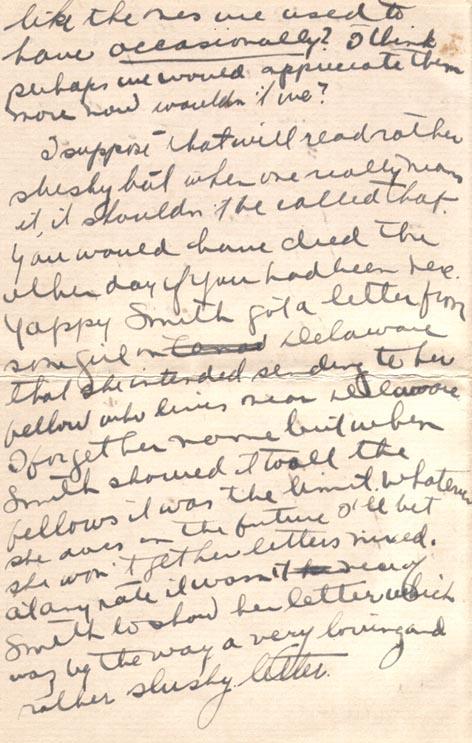 like the ones we used to
have occasionally? I think
perhaps we would appreciate them
more now wouldn't we?
I suppose that will read rather
slushy but when one really means
it, it shouldn't be called that.
You would have died the
other day if you had been here.
Yappy Smith got a letter from
some girl in Canad Delaware
that she intended sending to her
fellow who lives near Delaware
I forget her name but when
Smith showed it to all the
fellows it was the limit. Whatever
she does in the future I'll bet
she won't get her letters mixed.
at any rate it wasn't nice of
Smith to show her letter which
was by the way a very loving and
rather slushy letter.